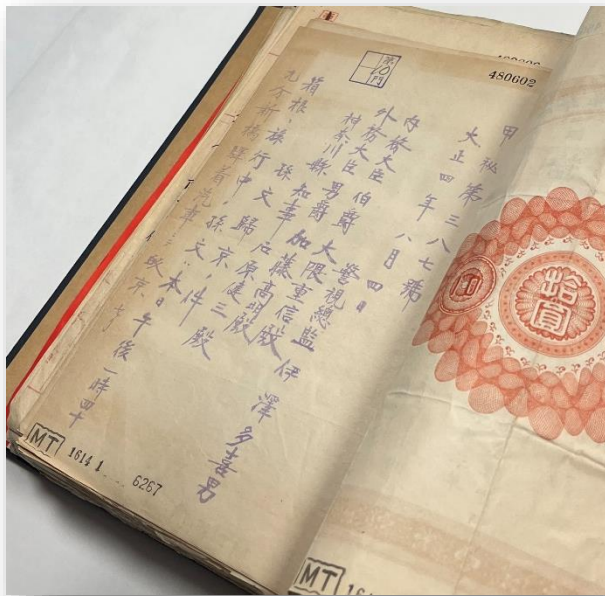 480602
第10門
甲秘第三八七號
大正四年八月四日
警視總監 伊澤多喜男
内務大臣 伯爵 大隈重信殿
外務大臣 男爵 加藤高明殿
神奈川縣知事 石原健三殿
孫文歸京ノ件
箱根ニ旅行中ノ孫文ハ本日午後一時四十
MT 1614 1 6267
拾圓
MT